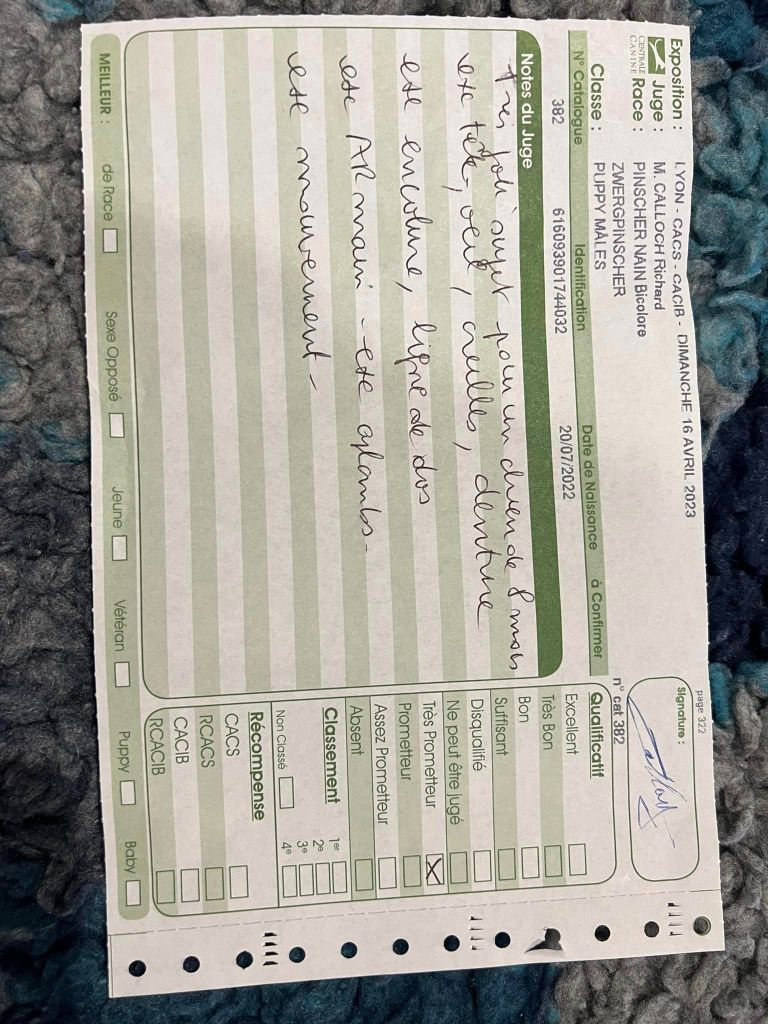 page 322
Exposition : LYON - CACS - CACIB - DIMANCHE 16 AVRIL 2023
Juge : M. CALLOCH Richard
CENTRALE CANINE
Race : PINSCHER NAIN Bicolore
ZWERGPINSCHER
Classe : PUPPY MÂLES
Signature :
n° cat 382
N° Catalogue Identification Date de Naissance à Confirmer
382 616093901744032 20/07/2022
Notes du Juge
Très joli sujet pour un chien de 8 mois
exc tête, oeil, oreilles, denture
exc encolure, ligne de dos
exc AR main - exc aplombs -
exc mouvement -
Qualificatif
Excellent
Très Bon
Bon
Suffisant
Disqualifié
Ne peut être jugé
Très Prometteur X
Prometteur
Assez Prometteur
Absent
Classement
1er
2e
3e
Non Classé 4e
Récompense
CACS
RCACS
CACIB
RCACIB
MEILLEUR : de Race Sexe Opposé Jeune Vétéran Puppy Baby